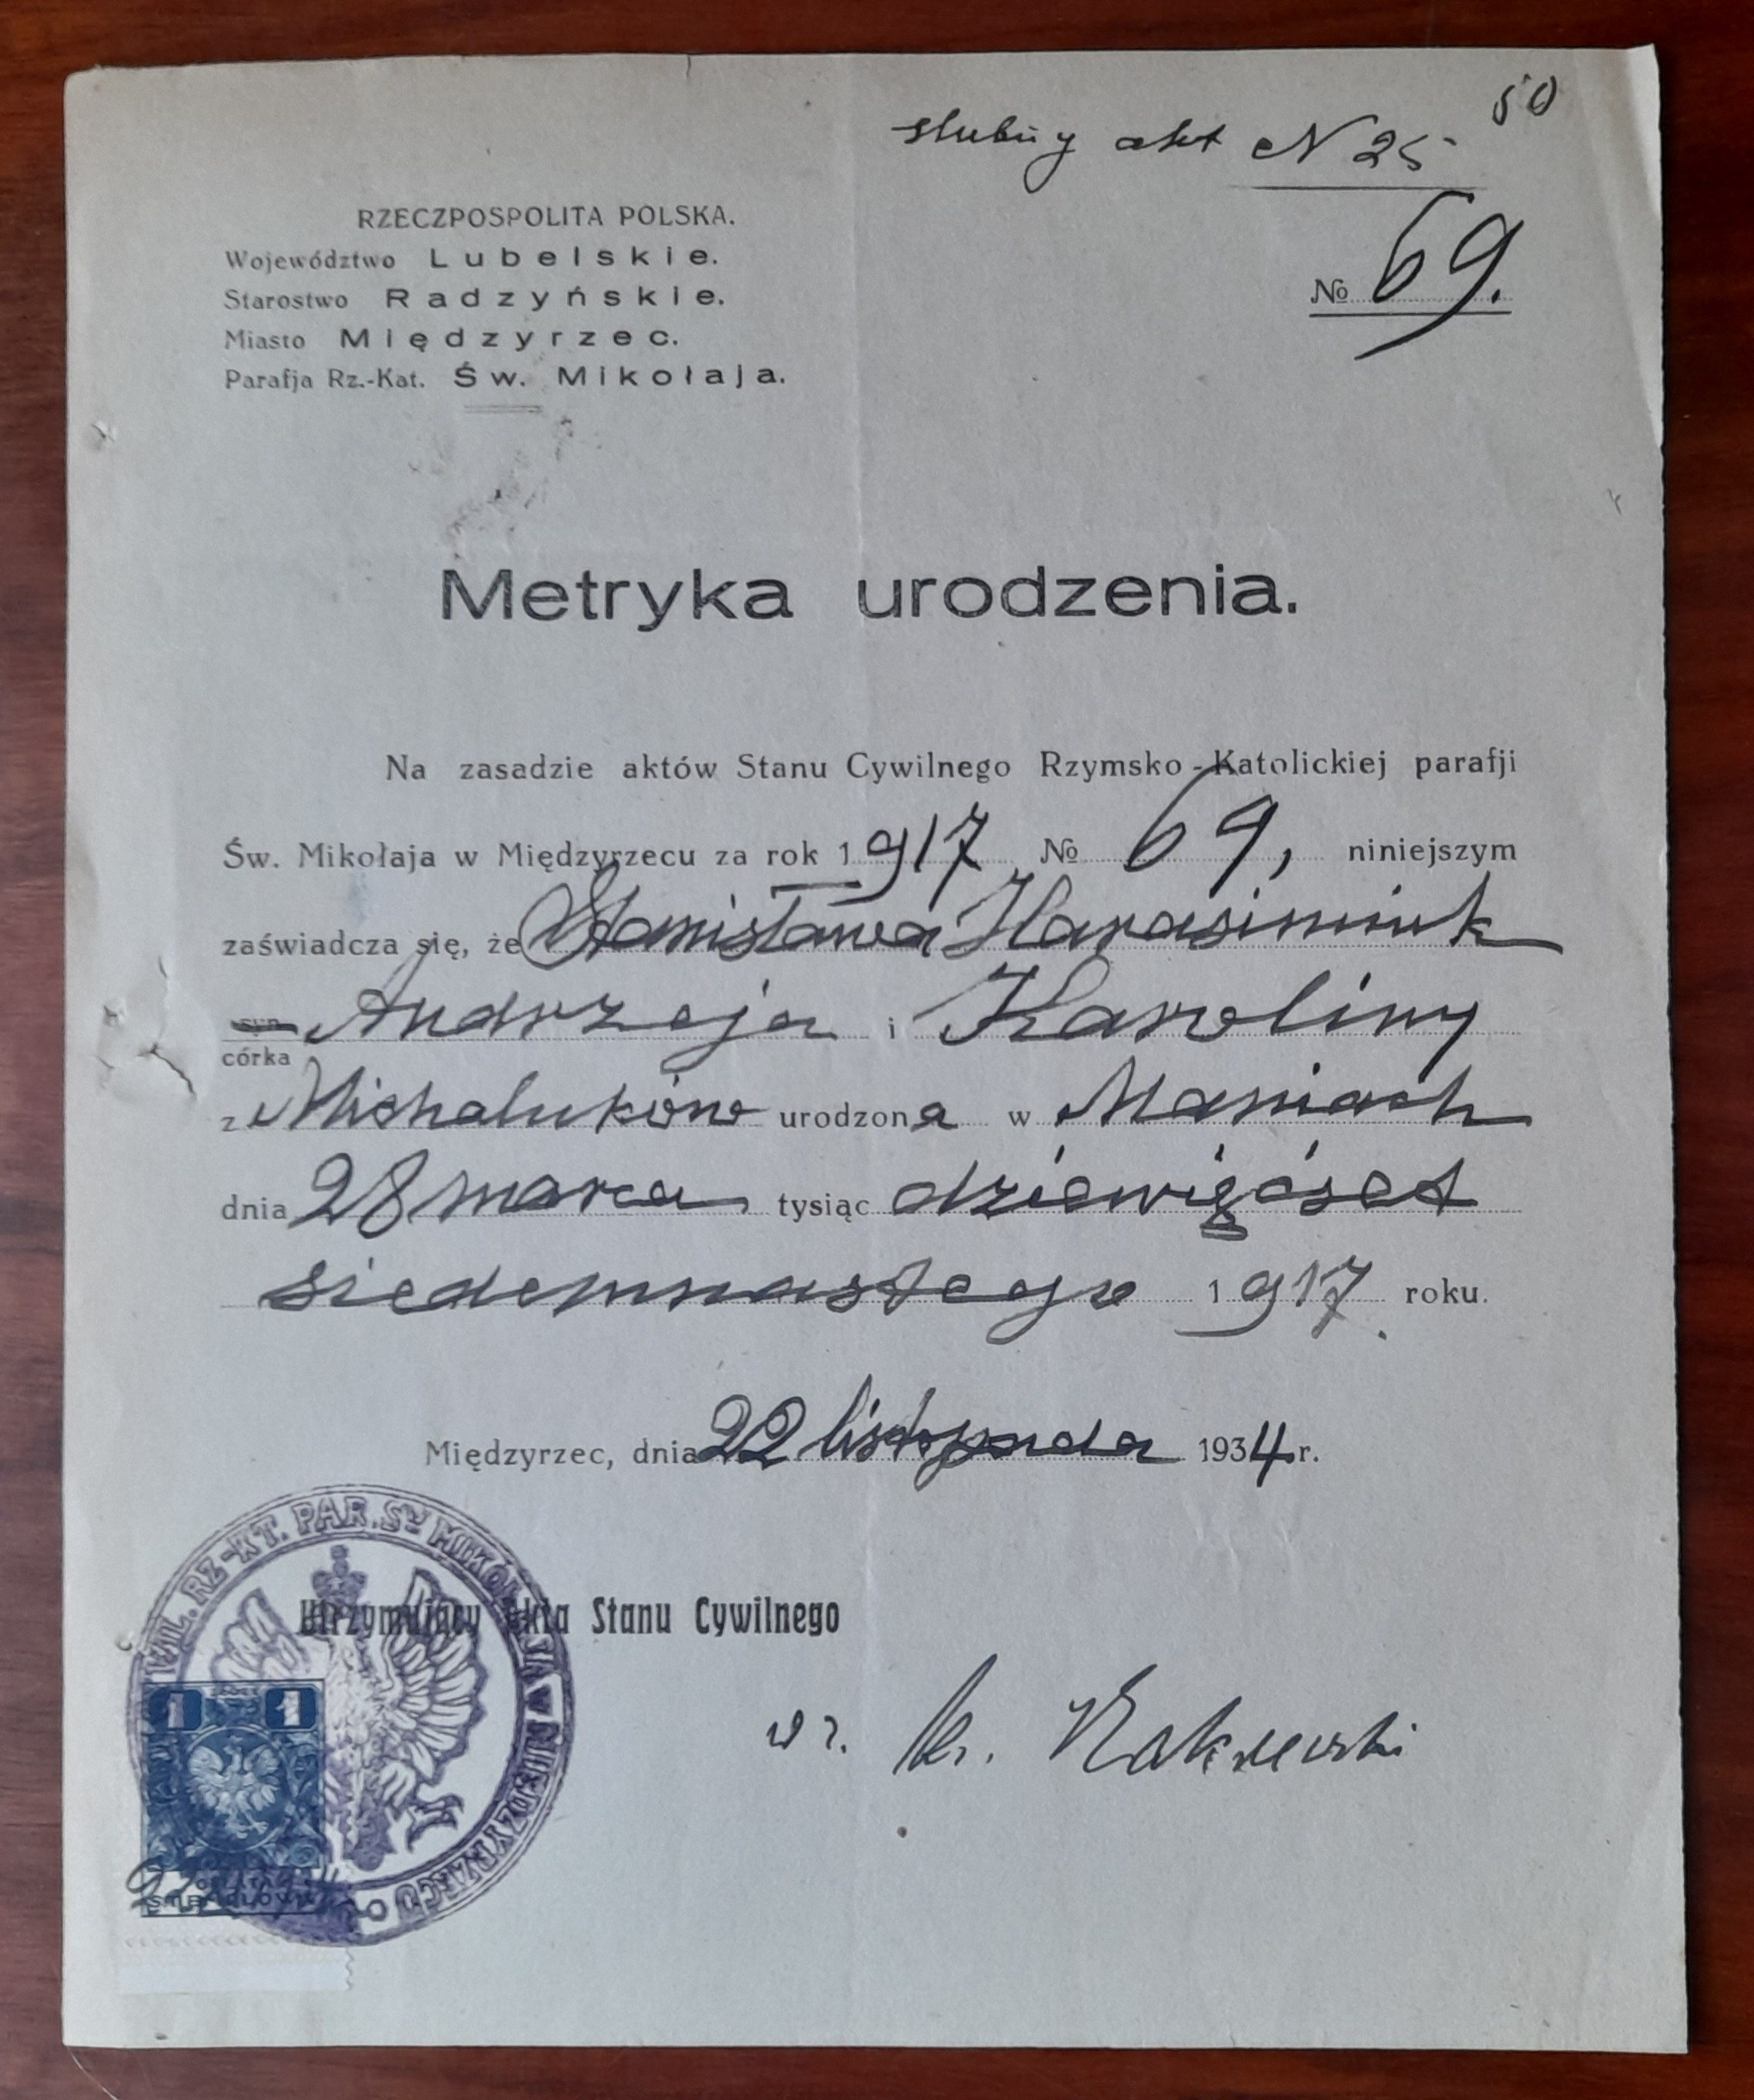 50
slubny akt N 25
RZECZPOSPOLITA POLSKA.
Województwo Lubelskie.
Starostwo Radzyńskie.
№ 69.
Miasto Międzyrzec.
Parafja Rz.-Kat. Św. Mikołaja.
Metryka urodzenia.
Na zasadzie aktów Stanu Cywilnego Rzymsko-Katolickiej parafji
Św. Mikołaja w Międzyrzecu za rok 1917 № 69, niniejszym
zaświadcza się, że Stanisława Harasimiuk
syn Andrzeja i Karoliny
córka
z Michaluków urodzona w Maniach
dnia 28 marca tysiąc dziewięćset
siedemnastego 1917 roku.
Międzyrzec, dnia 22 listopada 1934 r.
Utrzymujący Akta Stanu Cywilnego
RZ-KT. PAR. Sw MIKOŁAJA W MIĘDZYRZECU
1 1
w z. ks.